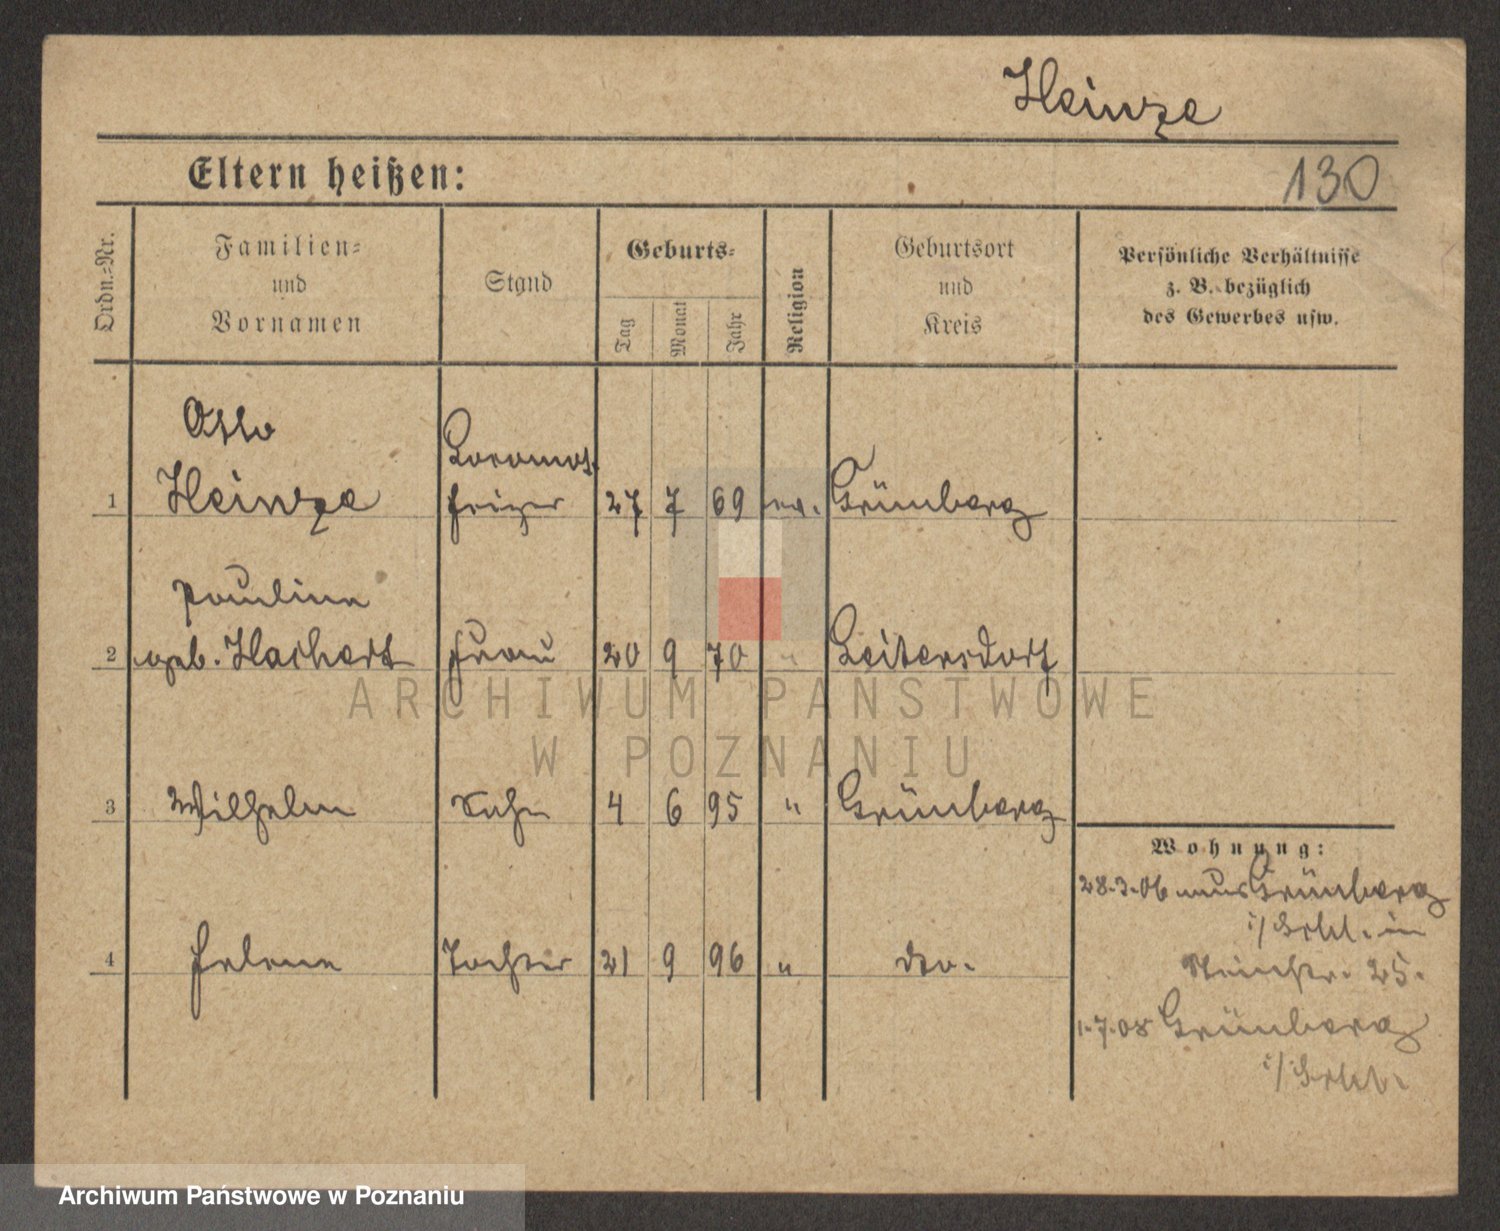 Heinze
Eltern heißen:
130
Ordn.-Nr.
Familien-
und
Vornamen
Stand
Geburts-
Tag
Monat
Jahr
Religion
Geburtsort
und
Kreis
Persönliche Verhältnisse
z. B. bezüglich
des Gewerbes usw.
Otto
Locomot.
1 Heinze heizer 27 7 69 ev. Grünberg
Pauline
2 geb. Hachert Frau 20 9 70 " Leitersdorf
3 Wilhelm Sohn 4 6 95 " Grünberg
Wohnung:
28.3.06 aus Grünberg
i/Schl. in
25.
4 Helene Tochter 21 9 96 " do.
1.7.08 Grünberg
i/Schl.
ARCHIWUM PAŃSTWOWE
W POZNANIU
Archiwum Państwowe w Poznaniu